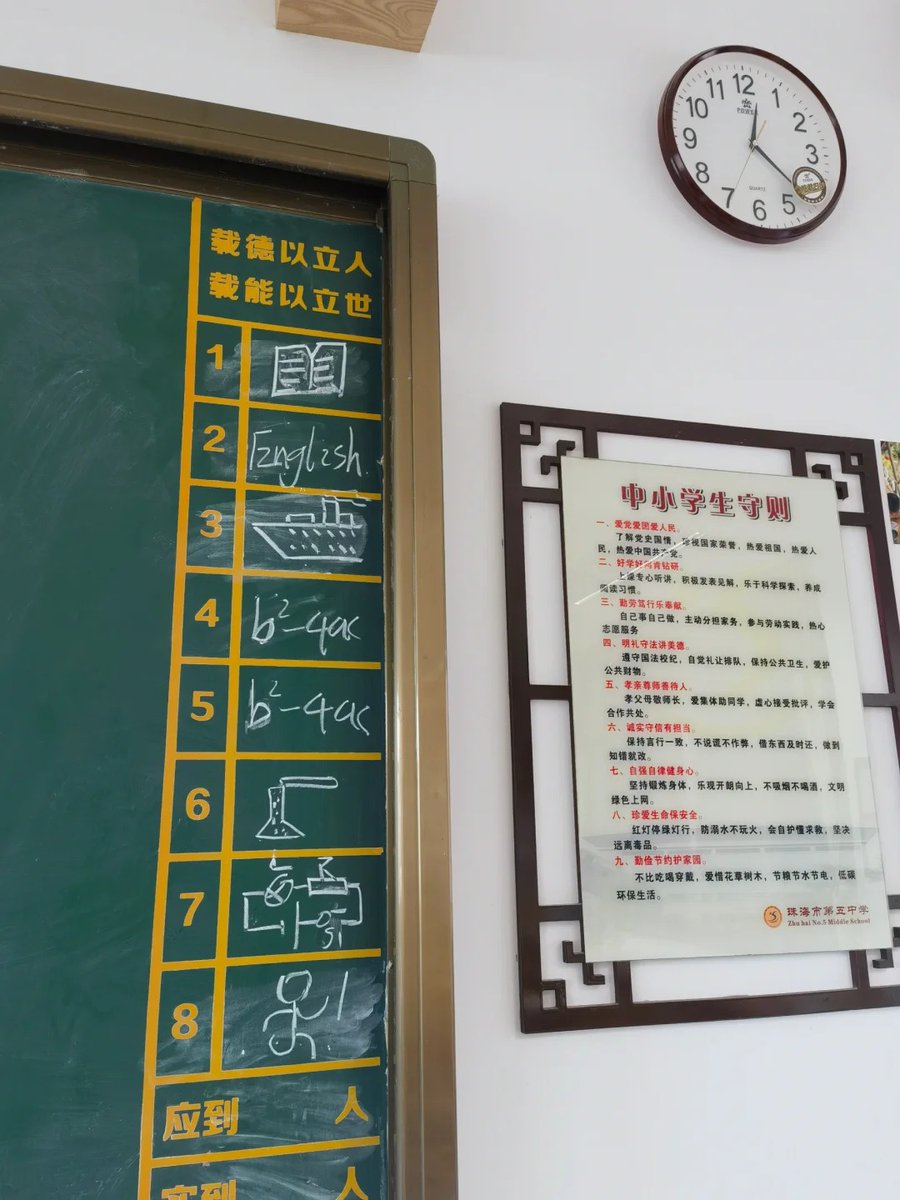 载德以立人
载能以立世
1
2 English.
3
4 b²-4ac
5 b²-4ac
6
7
8
应到 人
实到 人
12
1
2
3
5
6
7
8
9
10
11
POWER
QUARTZ
中小学生守则
一、爱党爱国爱人民。
了解党史国情，珍视国家荣誉，热爱祖国，热爱人
民，热爱中国共产党。
二、好学好问肯钻研。
上课专心听讲，积极发表见解，乐于科学探索，养成
阅读习惯。
三、勤劳笃行乐奉献。
自己事自己做，主动分担家务，参与劳动实践，热心
志愿服务
四、明礼守法讲美德。
遵守国法校纪，自觉礼让排队，保持公共卫生，爱护
公共财物。
五、孝亲尊师善待人。
孝父母敬师长，爱集体助同学，虚心接受批评，学会
合作共处。
六、诚实守信有担当。
保持言行一致，不说谎不作弊，借东西及时还，做到
知错就改。
七、自强自律健身心。
坚持锻炼身体，乐观开朗向上，不吸烟不喝酒，文明
绿色上网。
八、珍爱生命保安全。
红灯停绿灯行，防溺水不玩火，会自护懂求救，坚决
远离毒品。
九、勤俭节约护家园。
不比吃喝穿戴，爱惜花草树木，节粮节水节电，低碳
环保生活。
珠海市第五中学
Zhu hai No.5 Middle School